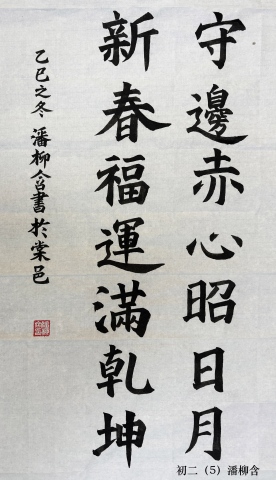 守邊赤心昭日月
新春福運滿乾坤
乙巳之冬 潘柳含書於棠邑
初二（5）潘柳含